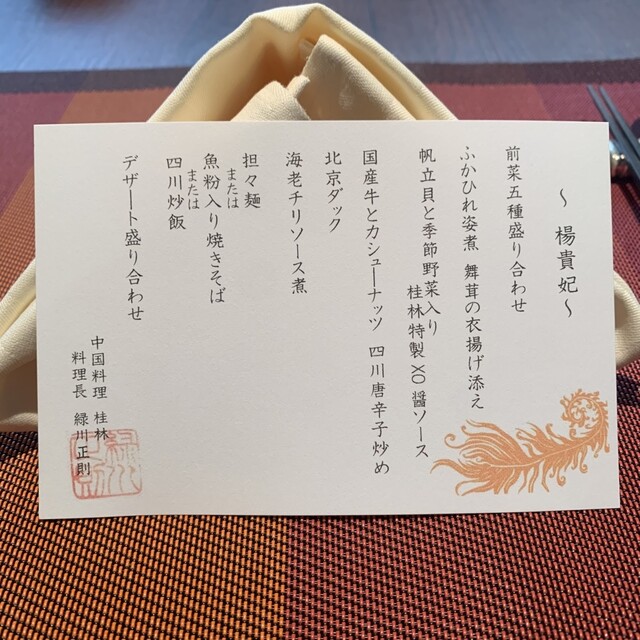 ～楊貴妃～
前菜五種盛り合わせ
ふかひれ姿煮 舞茸の衣揚げ添え
帆立貝と季節野菜入り
桂林特製XO醤ソース
国産牛とカシューナッツ 四川唐辛子炒め
北京ダック
海老チリソース煮
担々麺
または
魚粉入り焼きそば
または
四川炒飯
デザート盛り合わせ
中国料理 桂林
料理長 緑川正則